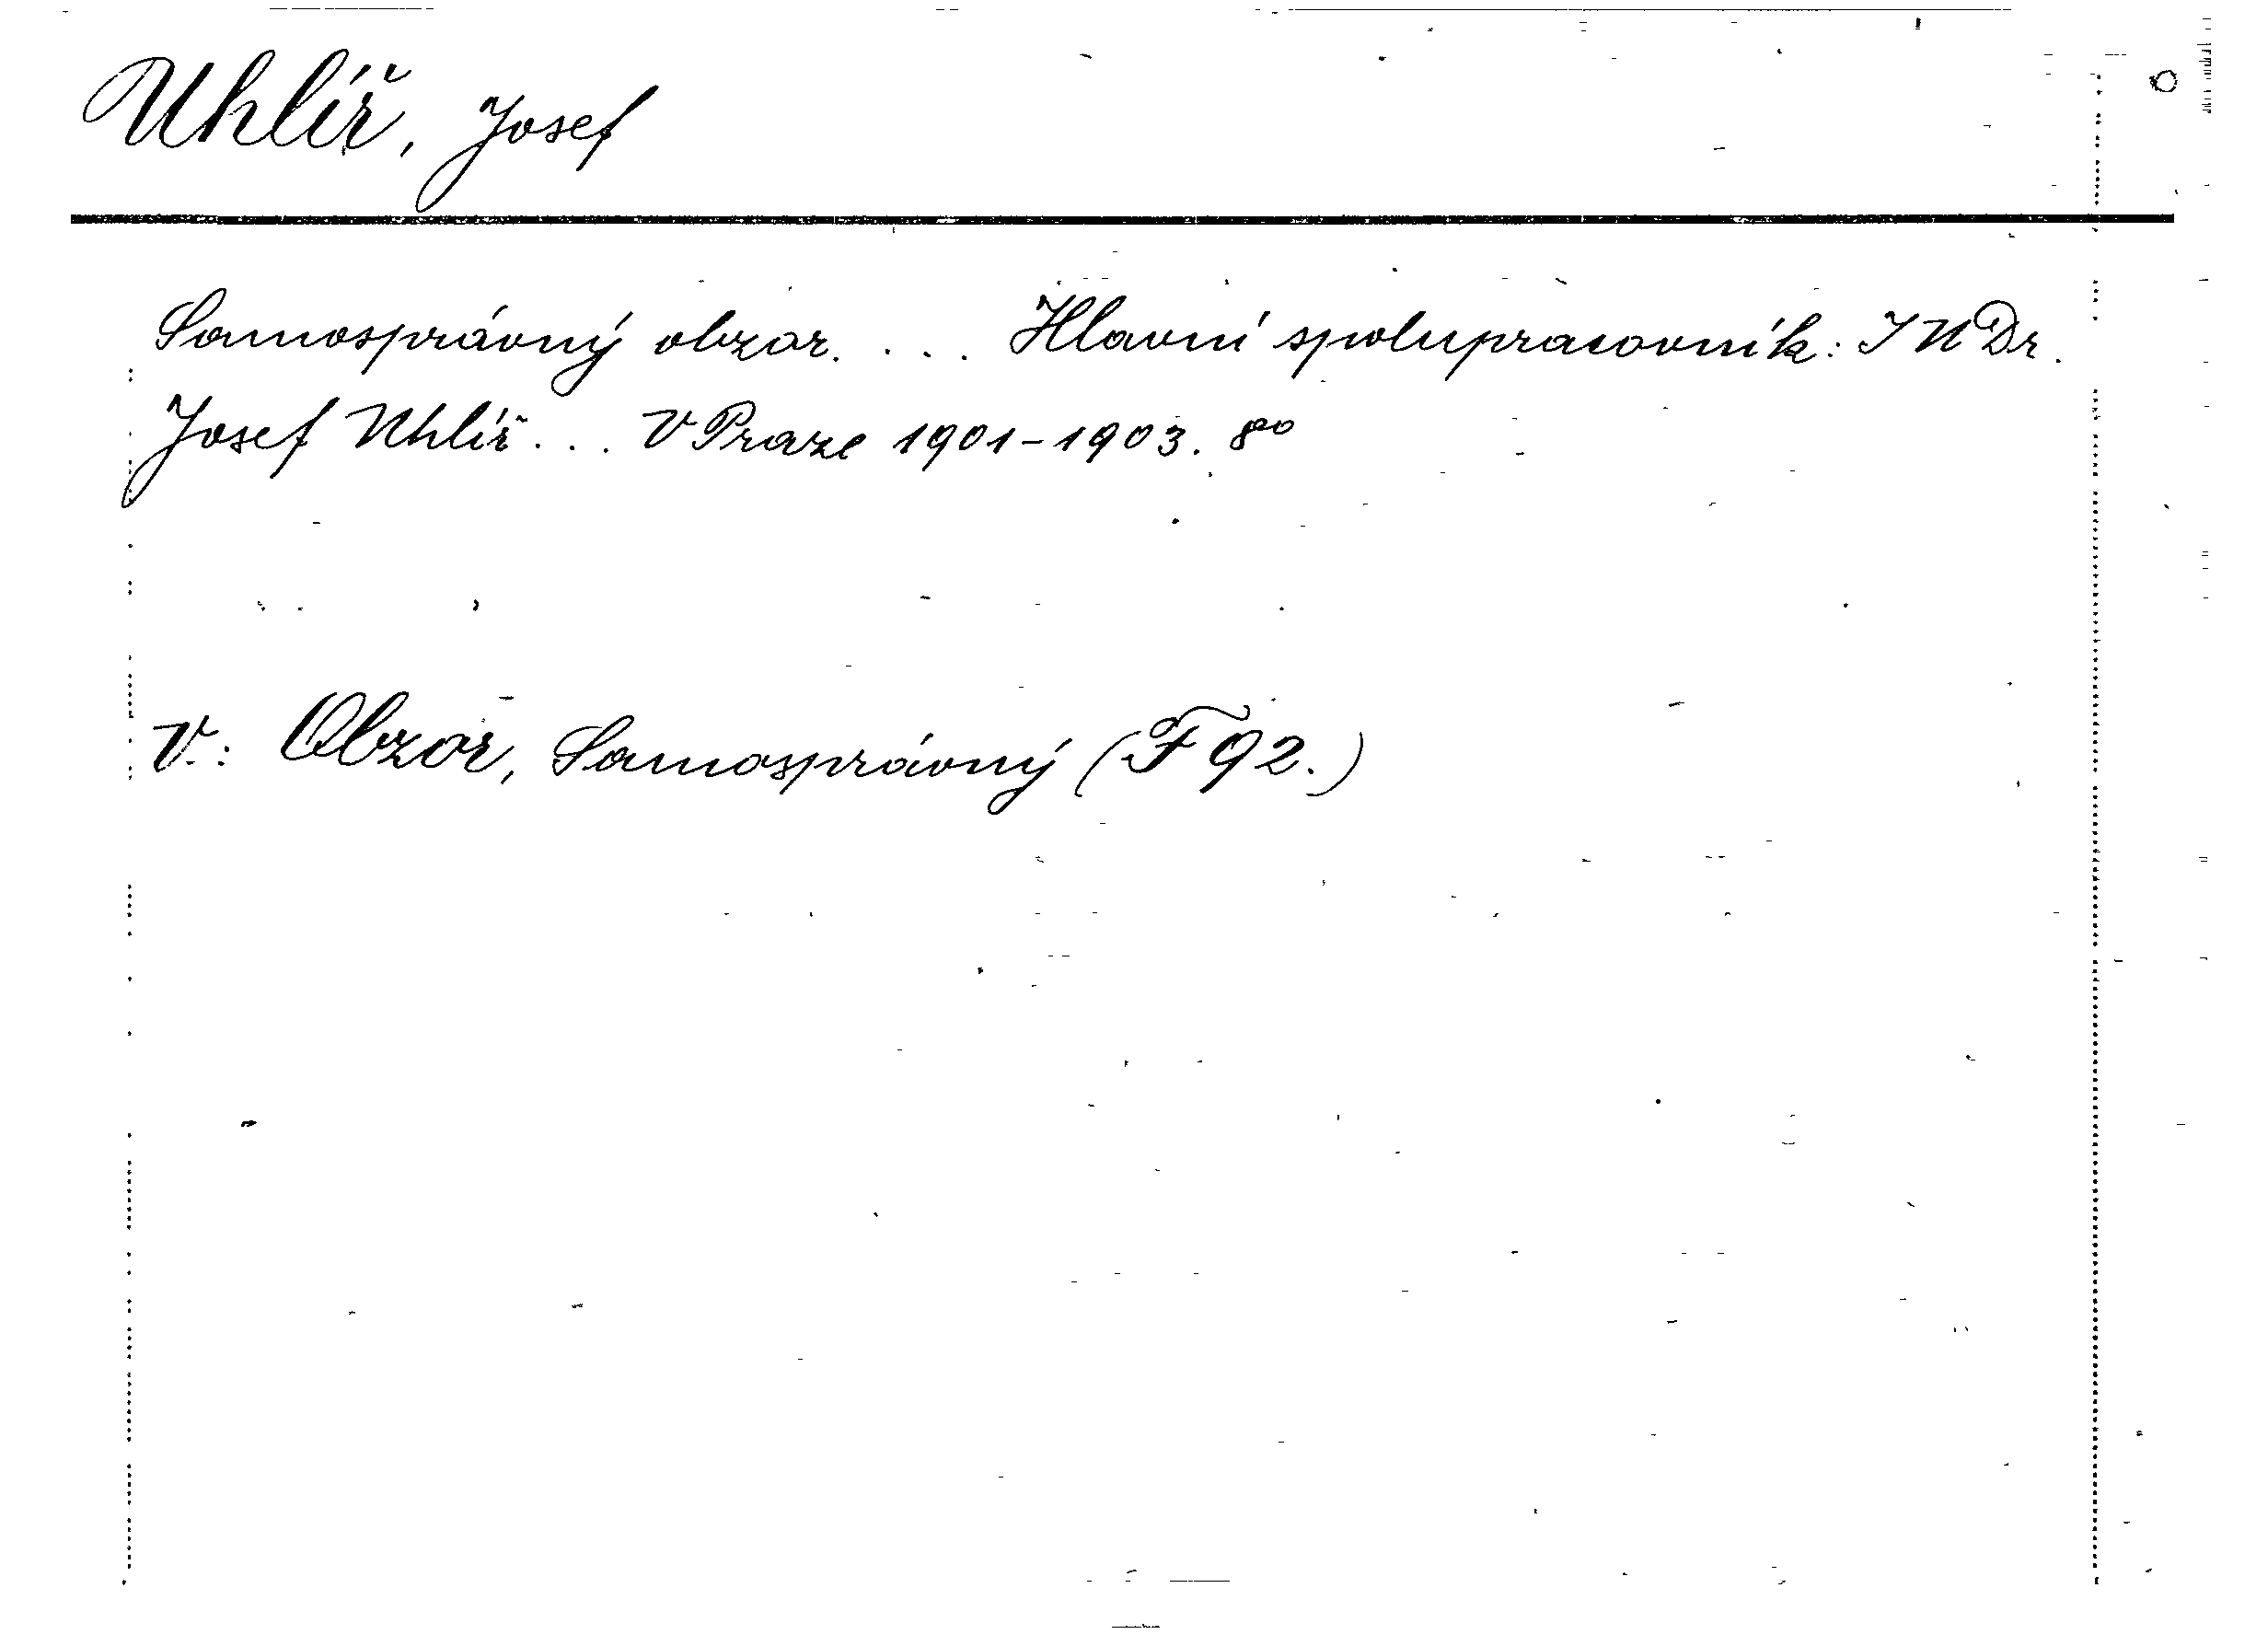 Uhlíř, Josef
Samosprávný obzor. ... Hlavní spolupracovník: JUDr.
Josef Uhlíř... V Praze 1901-1903. 8°
V.: Obzor, Samosprávný (F 92.)